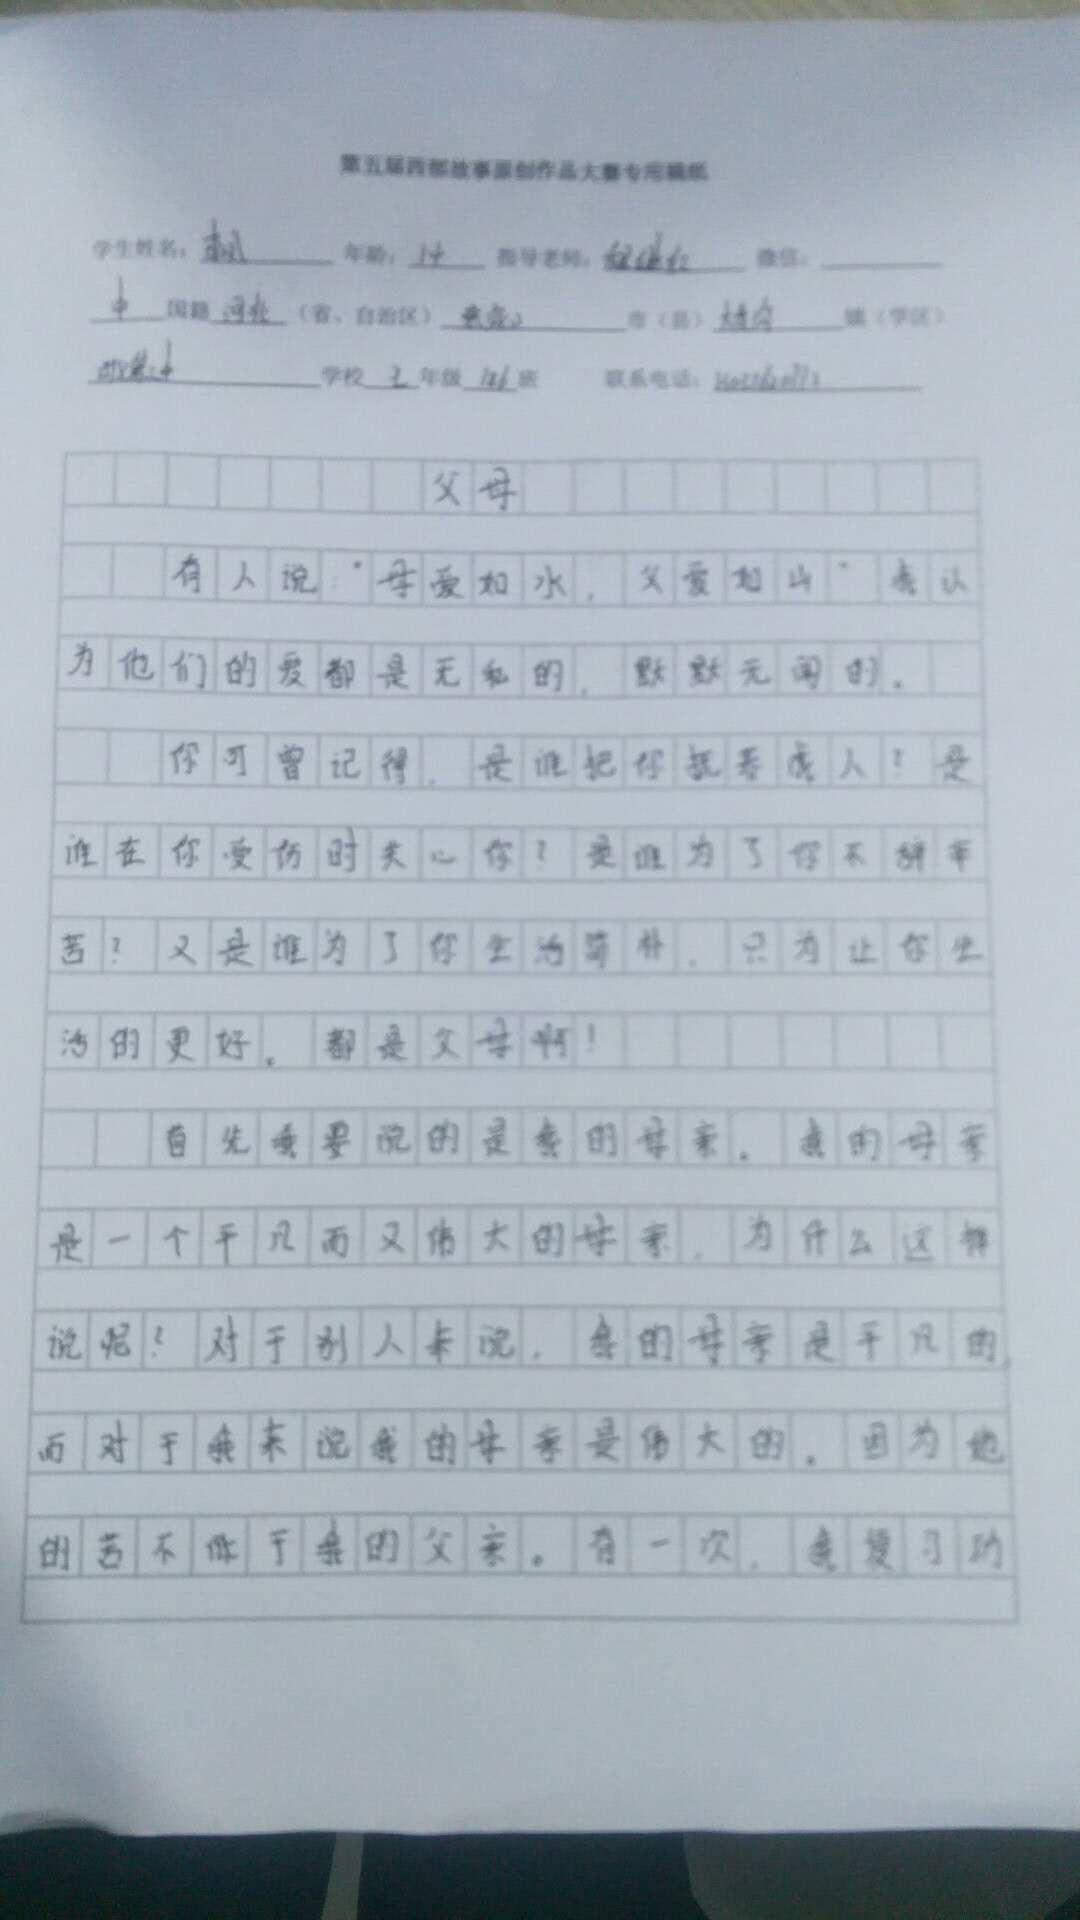 第五届西部故事原创作品大赛专用稿纸
学生姓名： 年龄：14 指导老师： 微信：
中 国籍 河北 （省、自治区） 市（县） 镇（学区）
学校 年级 班 联系电话：
父母
有人说：“母爱如水，父爱如山”我认
为他们的爱都是无私的，默默无闻的。
你可曾记得，是谁把你抚养成人？是
谁在你受伤时关心你？是谁为了你不辞辛
苦？又是谁为了你生活简朴，只为让你生
活的更好。都是父母啊！
首先我要说的是我的母亲。我的母亲
是一个平凡而又伟大的母亲，为什么这样
说呢？对于别人来说，我的母亲是平凡的，
而对于我来说我的母亲是伟大的。因为她
的苦不低于我的父亲。有一次，我复习功